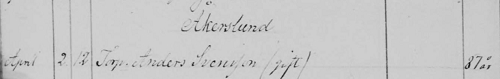 Åkerslund
April 2. 12 Torp. Anders Svensson (gift) 87 år